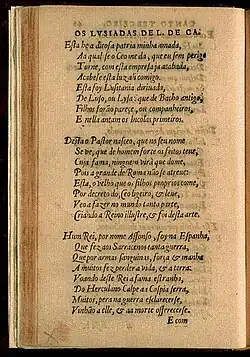 OS LVSIADAS DE L. DE CA.
Esta he a ditosa patria minha amada,
Aa qual se o Ceo me da, que eu sem perigo
Torne, com esta empresa ja acabada,
Acabese esta luz ali comigo.
Esta foy Lusitania diriuada,
De Luso, ou Lysa: que de Bacho antigo,
Filhos forão pareçe, ou companheiros,
E nella antam os Incolas primeiros.
Desta o Pastor nasceo, que no seu nome
Se ve, que de homem forte os feitos teue,
Cuja fama, ninguem virà que dome,
Pois a grande de Roma não se atreue:
Esta, o velho que os filhos proprios come,
Por decreto do Ceo ligeiro, & leue,
Veo a fazer no mundo tanta parte,
Criando a Reino illustre, & foi desta arte.
Hum Rei, por nome Affonso, foy na Espanha,
Que fez aos Sarracenos tanta guerra,
Que por armas sanguinas, força & manha
A muitos fez perder a vida, & a terra:
Voando deste Rei a fama estranha,
Do Herculano Calpe aa Caspia serra,
Muitos, pera na guerra esclarecerse,
Vinhão a elle, & aa morte offerecerse.
E com